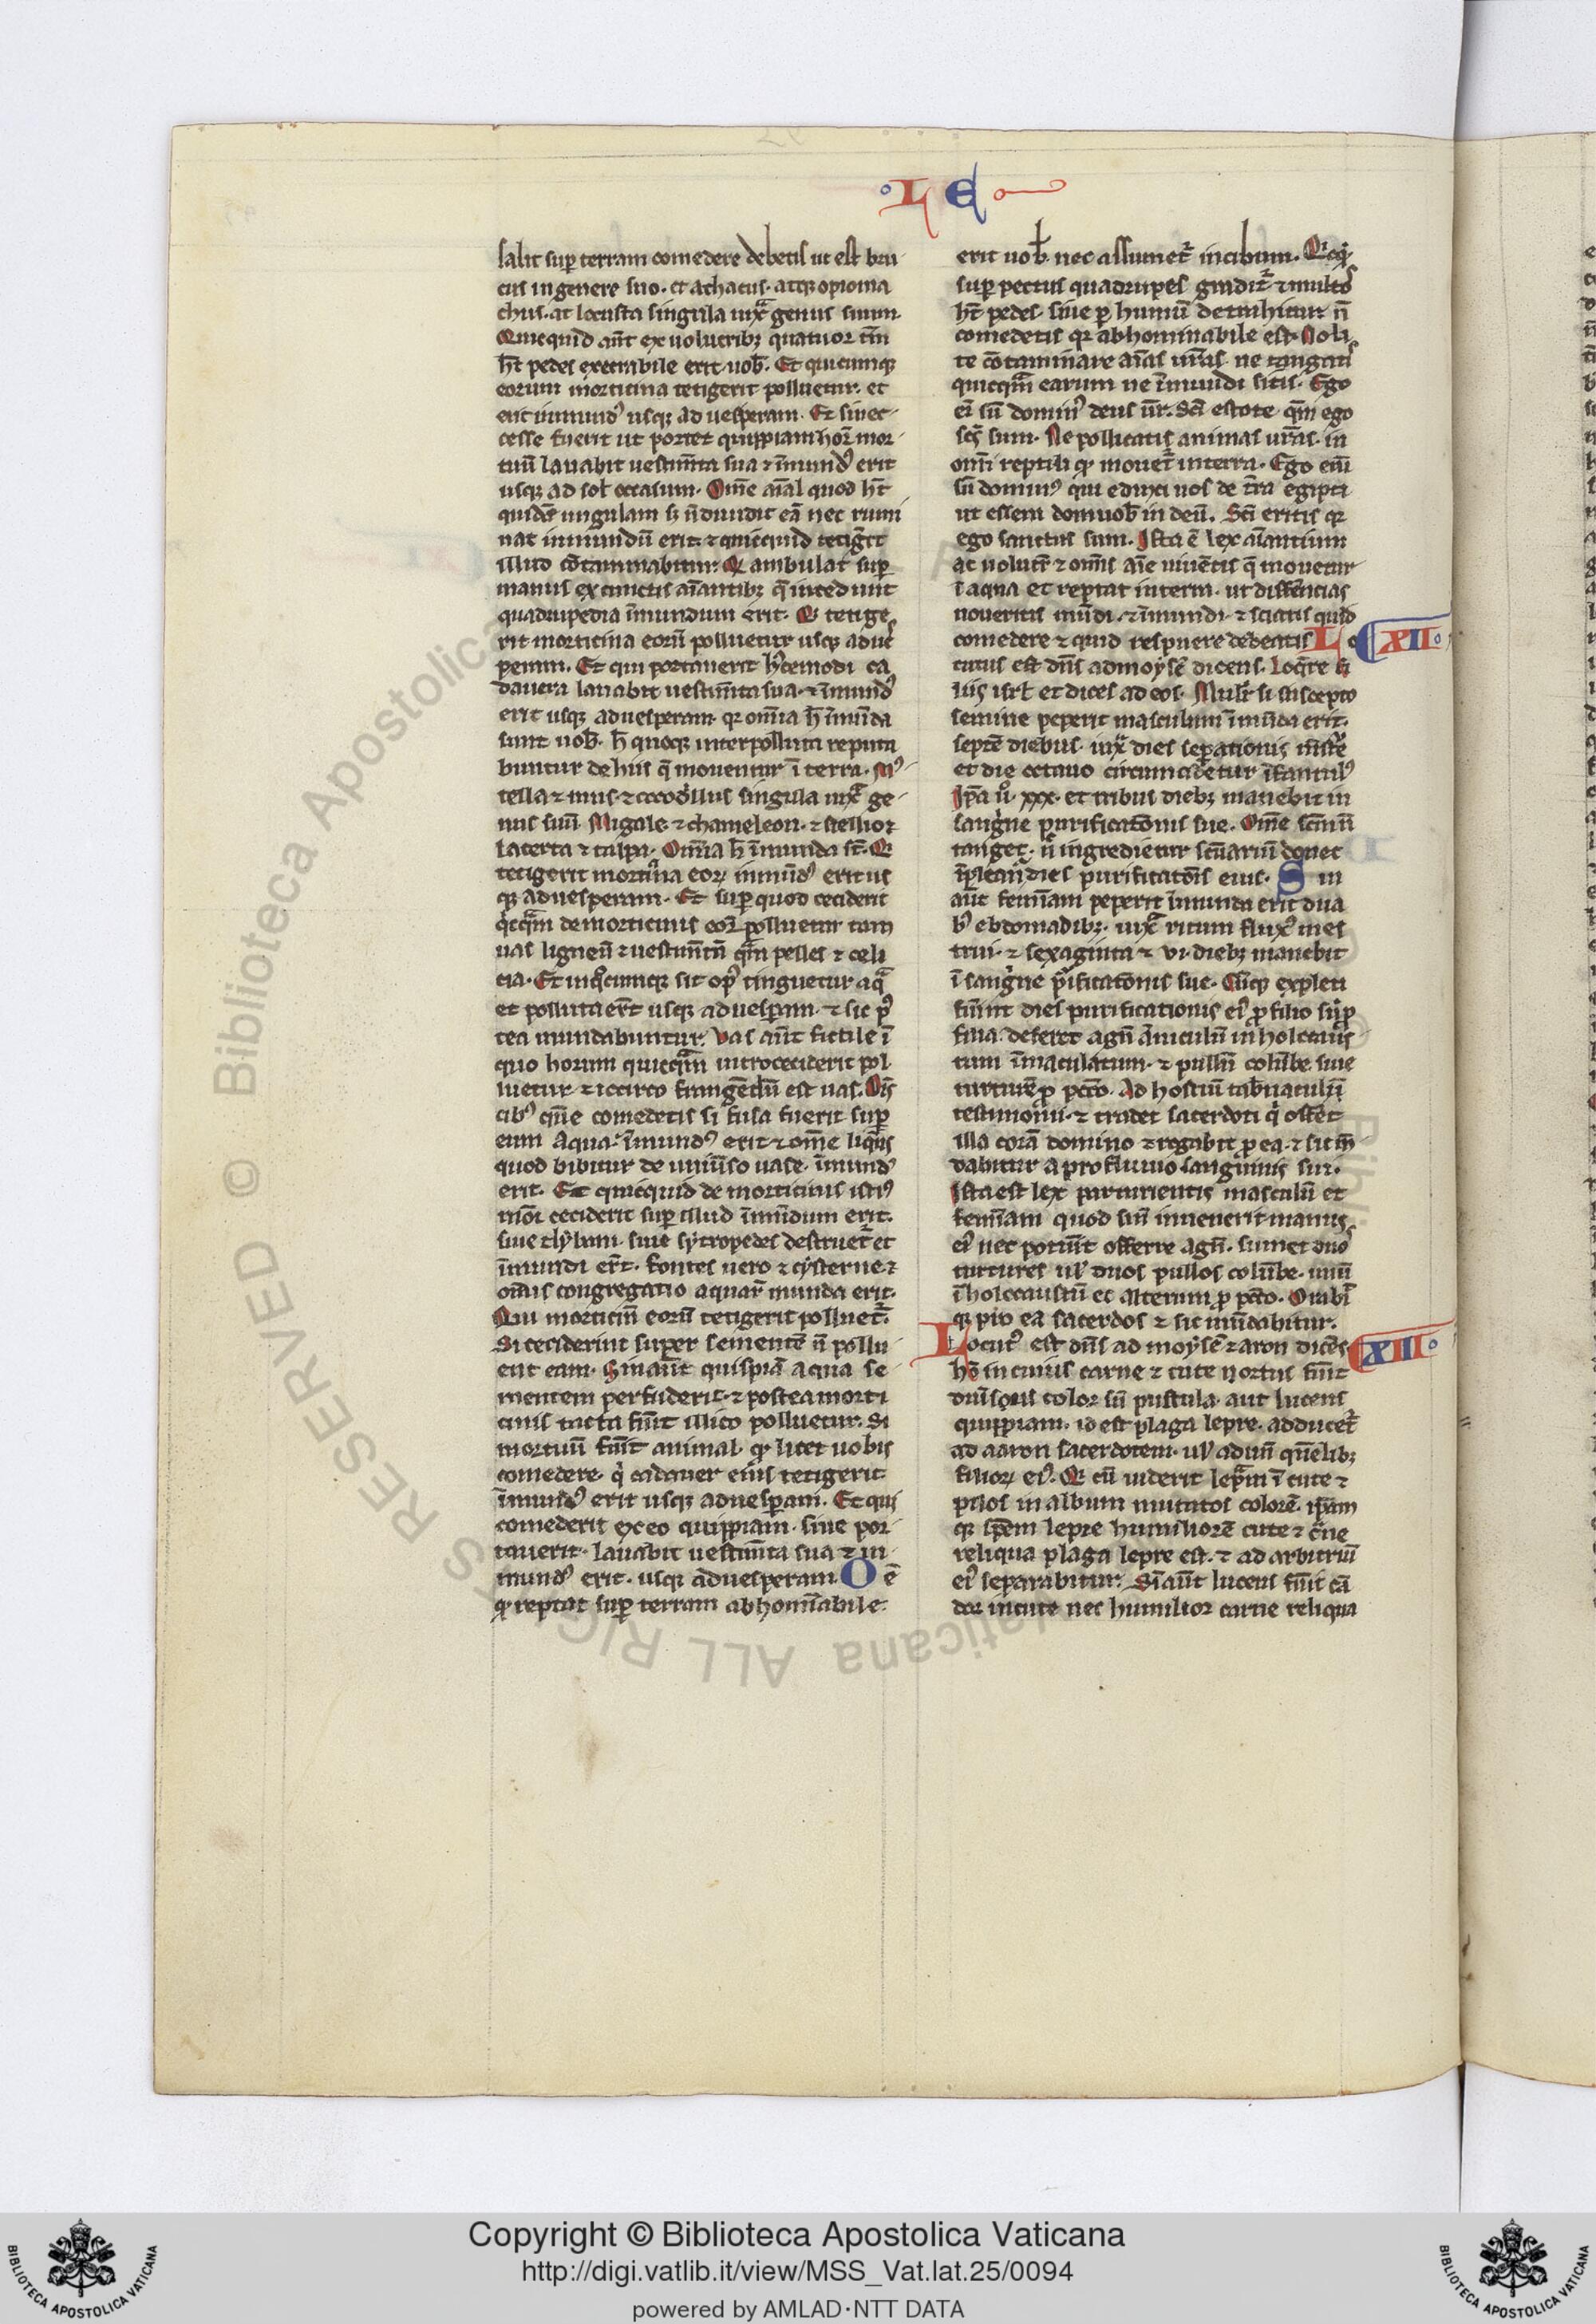 L E
salit sup̱ terram comedere debetis ut est bru
cus in genere suo. et athacus. atq; opioma
chus. ac locusta singula iuxᵃ genus suum.
Quicquid aūt ex uolucrib; quatuor tm̄
hn̄t pedes execrabile erit uob̄. Et quicumq;
eorum morticina tetigerit polluetur. et
erit inmundꝰ usq; ad uesperam. Et si nec
cesse fuerit ut portet quippiam hoꝝ mor
tuū lauabit uestim̄ta sua ⁊ īmundꝰ erit
usq; ad sol̄ occasum. Om̄e aīal quod h̄t
quidē ungulam sꝫ n̄ diuidit eā nec rumi
nat inmundū erit. ⁊ quicquid tetig̃it
illud cōtaminabitur. Qḋ ambulat sup̱
manus ex cunctis aīantib; q̄ incedunt
quadrupedia īmundum erit. Qͥ tetige
rit morticina eorū polluetur usq; ad ues
peram. Et qui portauerit hꝰcemodi ca
dauera lauabit uestim̄ta sua. ⁊ īmundꝰ
erit usq; ad uesperam. qꝛ om̄ia h̄ īmūda
sunt uob̄. h̄ quoq; inter polluta reputa
buntur de hiis q̄ mouentur ī terra. Mꝰ
tella ⁊ mus. ⁊ cocodͥllus singula iuxᵃ ge
nus suū. Migale. ⁊ chameleon. ⁊ stellio ⁊
lacerta ⁊ talpa. Omīa h̄ īmunda st̄. Qͥ
tetigerit mortiͥna eoꝝ inmūdꝰ erit us
q; ad uesperam. Et sup̱ quod ceciderit
qͥcqᵃm de morticinis eoꝝ polluetur tam
uas ligneū ⁊ uestim̄tū qᵃm pelles ⁊ cili
cia. Et in qͦcumq; fit opꝰ tinguetur aqᵃ
et polluta er̄t usq; ad uesp̱am. ⁊ sic pꝰ
tea mundabuntur. Vas aūt fictile ī
quo horum quicqᵃm introceciderit pol
luetur. ⁊ iccirco frangēdū est uas. Oīs
cibꝰ quē comedetis si fusa fuerit sup̱
eum aqua. īmundꝰ erit ⁊ om̄e liqͥns
quod bibitur de uniūso uase. īmundꝰ
erit. Et quicquid de morticinis istiꝰ
mōi ceciderit sup̱ illud īmūdum erit.
siue clybani. siue cytropedes destruet̄ et
īmundi er̄t. fontes uero ⁊ cysterne. ⁊
om̄is congregatio aquaꝝ munda erit.
Qui morticin̄ eorū tetigerit polluet̄.
Si ceciderint super sementē n̄ pollu
ent eam. Sin aūt quispiā aqua se
mentem perfuderit. ⁊ postea morti
cinis tacta fūit illico polluetur. Si
mortuū fūit animal. qḋ licet uobis
comedere. qͥ cadauer eius tetigerit
īmundꝰ erit usq; ad uesp̱am. Et qui
comederit ex eo quippiam. siue por
tauerit. lauabit uestim̄ta sua ⁊ in
mundꝰ erit. usq; ad uesperam. O ē
qḋ reptat sup̱ terram abhomīabile
erit uob̄. nec assumet̄ in cibum. Qͥcqͥ
sup̱ pectus quadrupes gradit̄. ⁊ multos
hr̄ pedes. siue p̱ humū detrahitur n̄
comedetis qꝛ abhominabile est. Noli
te cōtaminare aīas ur̄as. ne tangatis
quicqᵃm earum ne īmundi sitis. Ego
eī sū dominꝰ deus ur̄. Scī estote qm̄ ego
scs̄ sum. Ne polluatis animas ur̄as. in
om̄i reptili qḋ mouet̄ in terra. Ego eī
sū dominꝰ qui eduxi uos de tr̄a egipti
ut essem dom uob̄ in deū. Scī eritis qꝛ
ego sanctus sum. Ista ē lex aīantium
ac uolucꝝ ⁊ om̄is aīe uiuētis q̄ mouetur
ī aqua et reptat in terra. ut diffencias
noueritis mūdi. ⁊ īmundi. ⁊ sciatis quid
comedere ⁊ quid respuere debeatis. L o XII
cutus est dn̄s ad moysē dicens. Loq̄re fi
liis isrl̄ et dices ad eos. Mulier si suscepto
semine peperit masculum īmūda erit.
septē diebus. iuxᵃ dies sep̱ationis mr̄ue
et die octauo circumcidetur īfantulꝰ
Ip̄a u̇̊. xxx. et tribus dieb; manebit in
sangͥne purificatōnis sue. Om̄e scm̄
tanget. n̄ ingredietur sc̄uariū donec
īpleant̄ dies purificatōis eius. S in
aūt feminam peperit īmunda erit dua
bꝰ ebdomadib;. iuxᵃ ritum fluxꝰ mēs
trui. ⁊ sexaginta ⁊ vi. dieb; manebit
ī sangͥne pͥificatōnis sue. Cūq; expleti
fūint dies purificationis eiꝰ ꝓ filio siͥ ꝓ
filia. deferet agn̄ āniculū in holocaus
tum īmaculatum. ⁊ pullū colūbe siue
turturē ꝓ pccō. Ad hostiū tab̄naculū
testimonii. ⁊ tradet sacerdoti qͥ offēt
illa corā domino ⁊ rogabit ꝓ ea. ⁊ sic mū
dabitur a profluuio sanguinis sui.
Ista est lex parturientis masculū et
feminam quod sin̄ inuenerit manus
eiꝰ nec potūit offerre agn̄. sumet duos
turtures ul̄ duos pullos colūbe. unū
ī holocaustū et alterum ꝓ pccō. Orabit
q; pro ea sacerdos ⁊ sic mūdabitur.
Locutꝰ est dn̄s ad moysē ⁊ aron dicēs XIII
hō in cuius carne ⁊ cute hortus fūit
diūsus color siͥ pustula. aut lucens
quippiam. id est plaga lepre. adducet̄
ad aaron sacerdotem. ul̄ ad un̄ qūelib;
filioꝝ eiꝰ. Qͥ cū uiderit lep̄m ī cute ⁊
pilos in album mutatos colorē. ip̄am
q; sp̄em lepre humiliorē cute ⁊ cᵃne
reliqua plaga lepre est. ⁊ ad arbitriū
eiꝰ separabitur. Sī aūt lucens fūit cā
dor in cute nec humilior carne reliqua
Copyright © Biblioteca Apostolica Vaticana
http://digi.vatlib.it/view/MSS_Vat.lat.25/0094
powered by AMLAD·NTT DATA